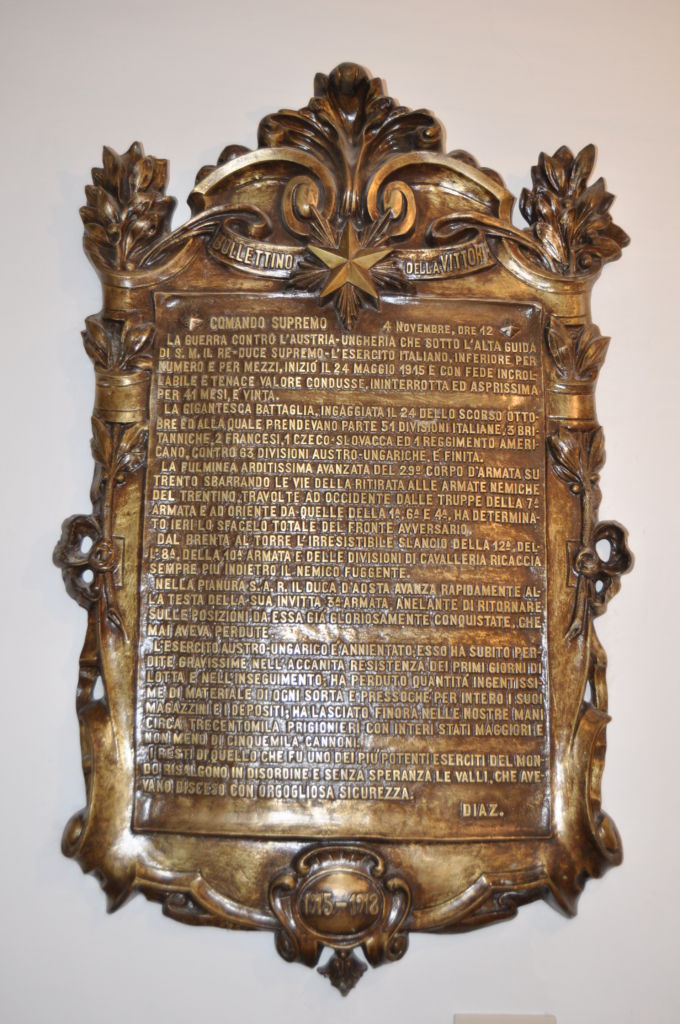 BOLLETTINO DELLA VITTOR
COMANDO SUPREMO 4 NOVEMBRE, ORE 12
LA GUERRA CONTRO L'AUSTRIA-UNGHERIA CHE SOTTO L'ALTA GUIDA
DI S. M. IL RE-DUCE SUPREMO-L'ESERCITO ITALIANO, INFERIORE PER
NUMERO E PER MEZZI, INIZIÒ IL 24 MAGGIO 1915 E CON FEDE INCROL-
LABILE E TENACE VALORE CONDUSSE, ININTERROTTA ED ASPRISSIMA
PER 41 MESI, È VINTA.
LA GIGANTESCA BATTAGLIA, INGAGGIATA IL 24 DELLO SCORSO OTTO-
BRE ED ALLA QUALE PRENDEVANO PARTE 51 DIVISIONI ITALIANE, 3 BRI-
TANNICHE, 2 FRANCESI, 1 CZECO-SLOVACCA ED 1 REGGIMENTO AMERI-
CANO, CONTRO 63 DIVISIONI AUSTRO-UNGARICHE, È FINITA.
LA FULMINEA ARDITISSIMA AVANZATA DEL 29º CORPO D'ARMATA SU
TRENTO SBARRANDO LE VIE DELLA RITIRATA ALLE ARMATE NEMICHE
DEL TRENTINO, TRAVOLTE AD OCCIDENTE DALLE TRUPPE DELLA 7ª
ARMATA E AD ORIENTE DA QUELLE DELLA 1ª, 6ª E 4ª, HA DETERMINA-
TO IERI LO SFACELO TOTALE DEL FRONTE AVVERSARIO.
DAL BRENTA AL TORRE L'IRRESISTIBILE SLANCIO DELLA 12ª, DEL-
L'8ª, DELLA 10ª ARMATA E DELLE DIVISIONI DI CAVALLERIA RICACCIA
SEMPRE PIÙ INDIETRO IL NEMICO FUGGENTE.
NELLA PIANURA S. A. R. IL DUCA D'AOSTA AVANZA RAPIDAMENTE AL-
LA TESTA DELLA SUA INVITTA 3ª ARMATA, ANELANTE DI RITORNARE
SULLE POSIZIONI DA ESSA GIÀ GLORIOSAMENTE CONQUISTATE, CHE
MAI AVEVA PERDUTE.
L'ESERCITO AUSTRO-UNGARICO È ANNIENTATO; ESSO HA SUBITO PER-
DITE GRAVISSIME NELL'ACCANITA RESISTENZA DEI PRIMI GIORNI DI
LOTTA E NELL'INSEGUIMENTO; HA PERDUTO QUANTITÀ INGENTISSI-
ME DI MATERIALE DI OGNI SORTA E PRESSOCHÉ PER INTERO I SUOI
MAGAZZINI E I DEPOSITI; HA LASCIATO FINORA NELLE NOSTRE MANI
CIRCA TRECENTOMILA PRIGIONIERI CON INTERI STATI MAGGIORI E
NON MENO DI CINQUEMILA CANNONI.
I RESTI DI QUELLO CHE FU UNO DEI PIÙ POTENTI ESERCITI DEL MON-
DO RISALGONO IN DISORDINE E SENZA SPERANZA LE VALLI, CHE AVE-
VANO DISCESO CON ORGOGLIOSA SICUREZZA.
DIAZ.
1915-1918